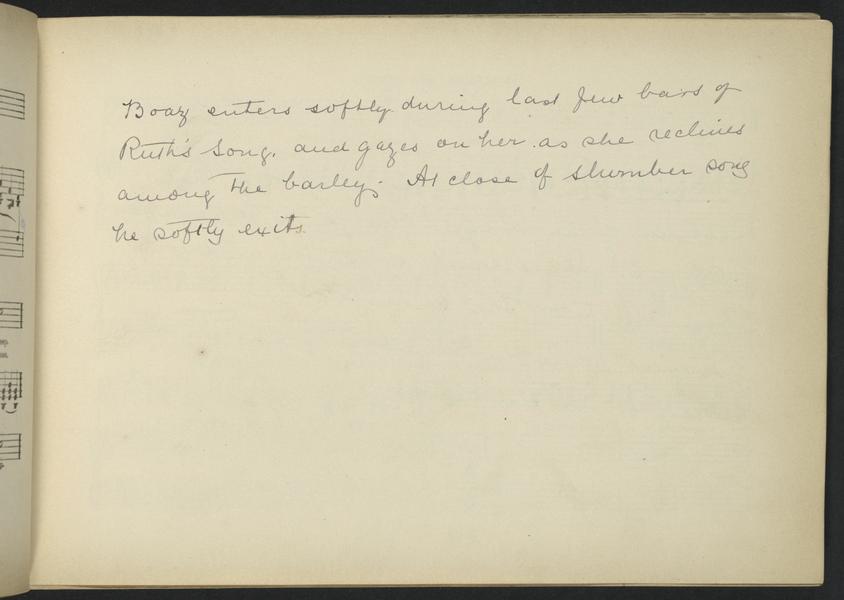 Boaz enters softly during last few bars of
Ruth's Song, and gazes on her as she reclines
among the barley; At close of slumber song
he softly exits.